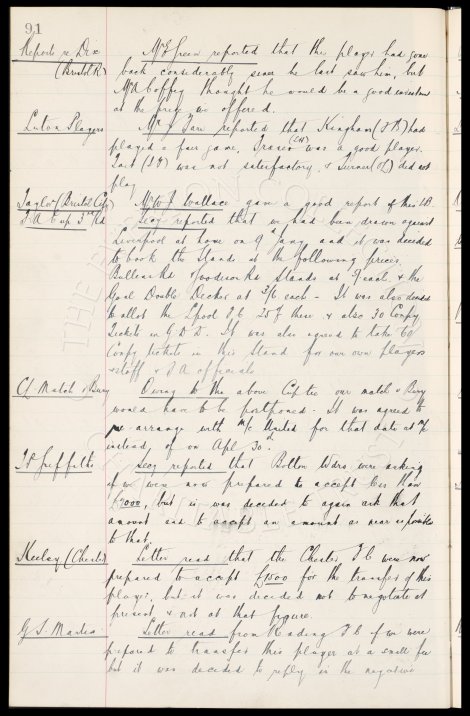 91
Reports re Dix Mr Green reported that the player had gone
(Bristol R) back considerably since he last saw him, but
Mr A Coffey thought he would be a good investment
at the price we offered.
Luton Players Mr J Farr reported that Kingham (R B) had
played a fair game, Fraser (LH) was a good player.
(I F) was not satisfactory, & Turner (O L) did not
play
Taylor (Bristol City) Mr W J Wallace gave a good report of this LB.
F.A Cup 3rd Rd Secy reported that we had been drawn against
Liverpool at home on 9th Jany and it was decided
to book the Stands at the following prices,
Bullens Rd & Goodison Rd Stands at 5/- each & the
Goal Double Decker at 3/6 each - It was also decided
to allot the L'pool F.C 25 of these & also 30 Compy
Tickets in G & D. It was also agreed to take 60
Compy tickets in this Stand for our own players
& staff & F.A officials
C/ Match v Bury Owing to the above Cup tie our match v Bury
would have to be postponed - It was agreed to
re-arrange with M/c United for that date at M/c
instead of on Apl 30th
T P Griffiths Secy reported that Bolton Wdrs were asking
if we were now prepared to accept less than
£7000, but it was decided to again ask that
amount and to accept an amount as near as possible
to that
Keeley (Chester) Letter read that the Chester F C were now
prepared to accept £1500 for the transfer of this
player, but it was decided not to negotiate at
present & not at that figure.
G S. Martin Letter read from Reading F C if we were
prepared to transfer this player at a small fee
but it was decided to reply in the negative